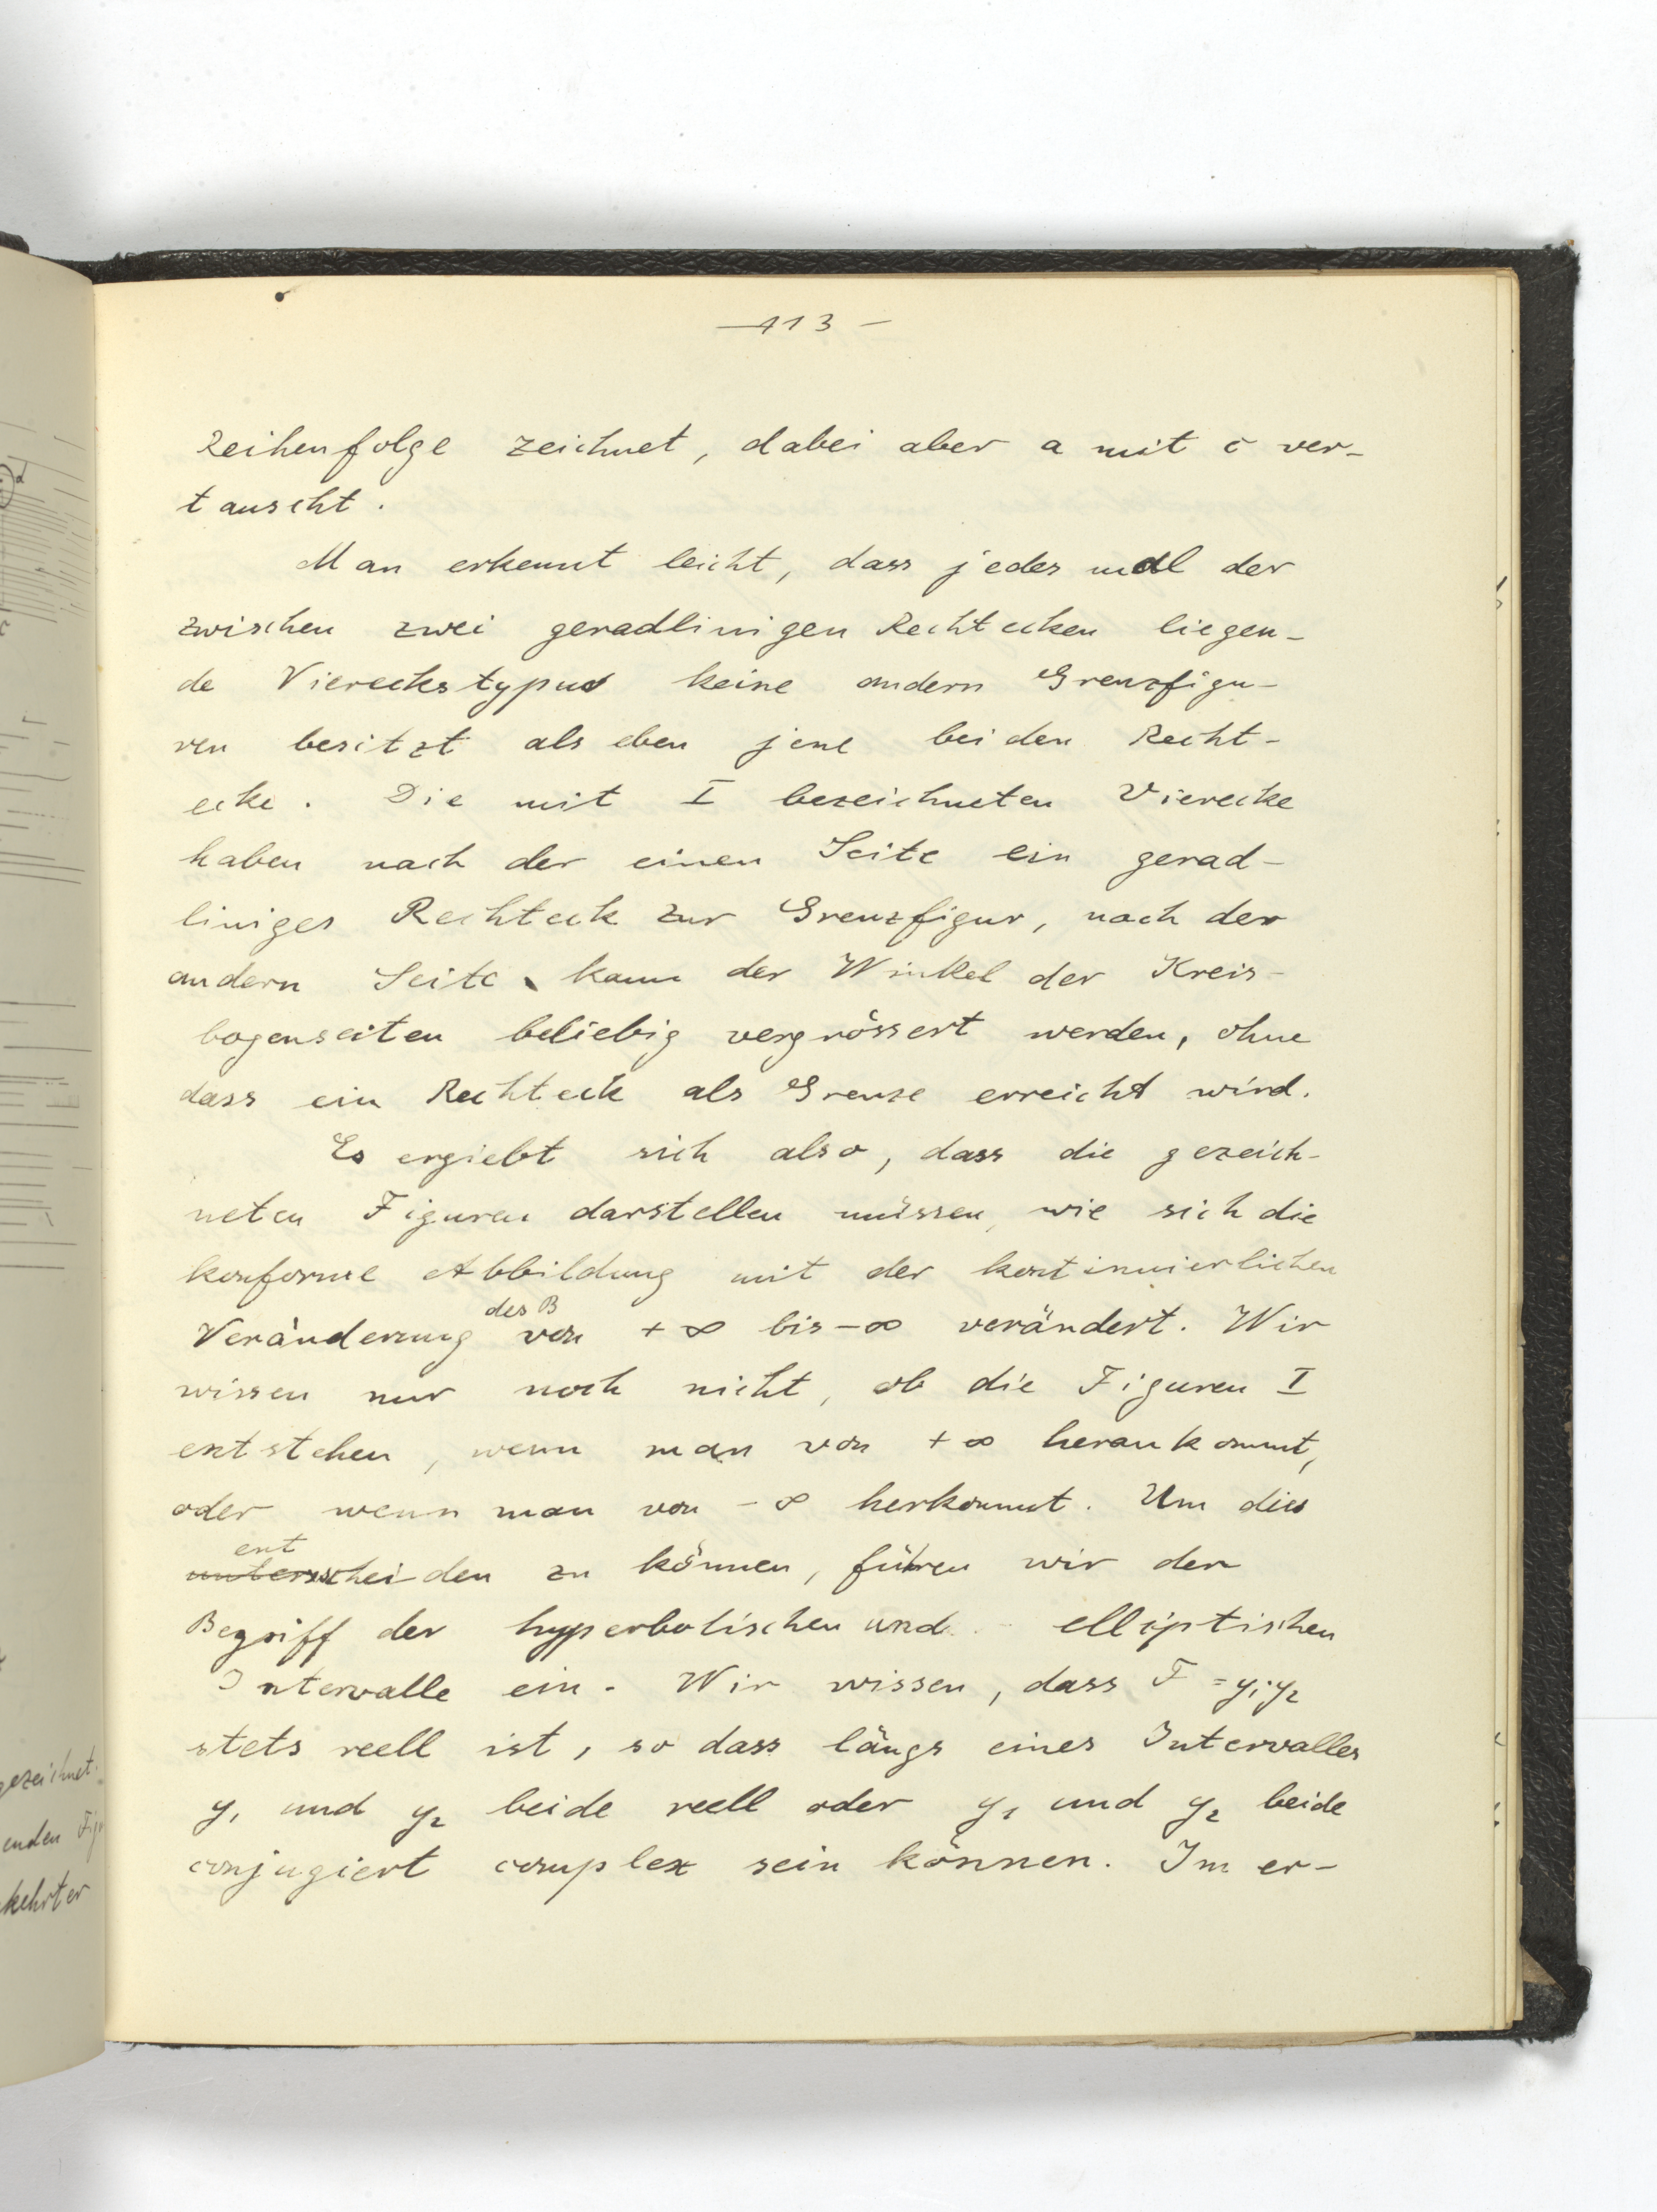 — 113 —
Reihenfolge zeichnet, dabei aber a mit c ver-
tauscht.
Man erkennt leicht, dass jedes mal der
zwischen zwei geradlinigen Rechtecken liegen-
de Viereckstypus keine andern Grenzfigu-
ren besitzt als eben jene beiden Recht-
ecke. Die mit I bezeichneten Vierecke
haben nach der einen Seite ein gerad-
liniges Rechteck zur Grenzfigur, nach der
andern Seite kann der Winkel der Kreis-
bogenseiten beliebig vergrössert werden, ohne
dass ein Rechteck als Grenze erreicht wird.
Es ergiebt sich also, dass die gezeich-
neten Figuren darstellen müssen, wie sich die
konforme Abbildung mit der kontinuierlichen
des B
Veränderung von + ∞ bis - ∞ verändert. Wir
wissen nur noch nicht, ob die Figuren I
entstehen, wenn man von + ∞ herankommt,
oder wenn man von - ∞ herkommt. Um dies
ent
unterscheiden zu können, führen wir den
Begriff der hyperbolischen und elliptischen
Intervalle ein. Wir wissen, dass F = y₁y₂
stets reell ist, so dass längs eines Intervalles
y₁ und y₂ beide reell oder y₁ und y₂ beide
conjugiert complex sein können. Im er-
gezeichnet.
enden Fig
kehrter
d
c